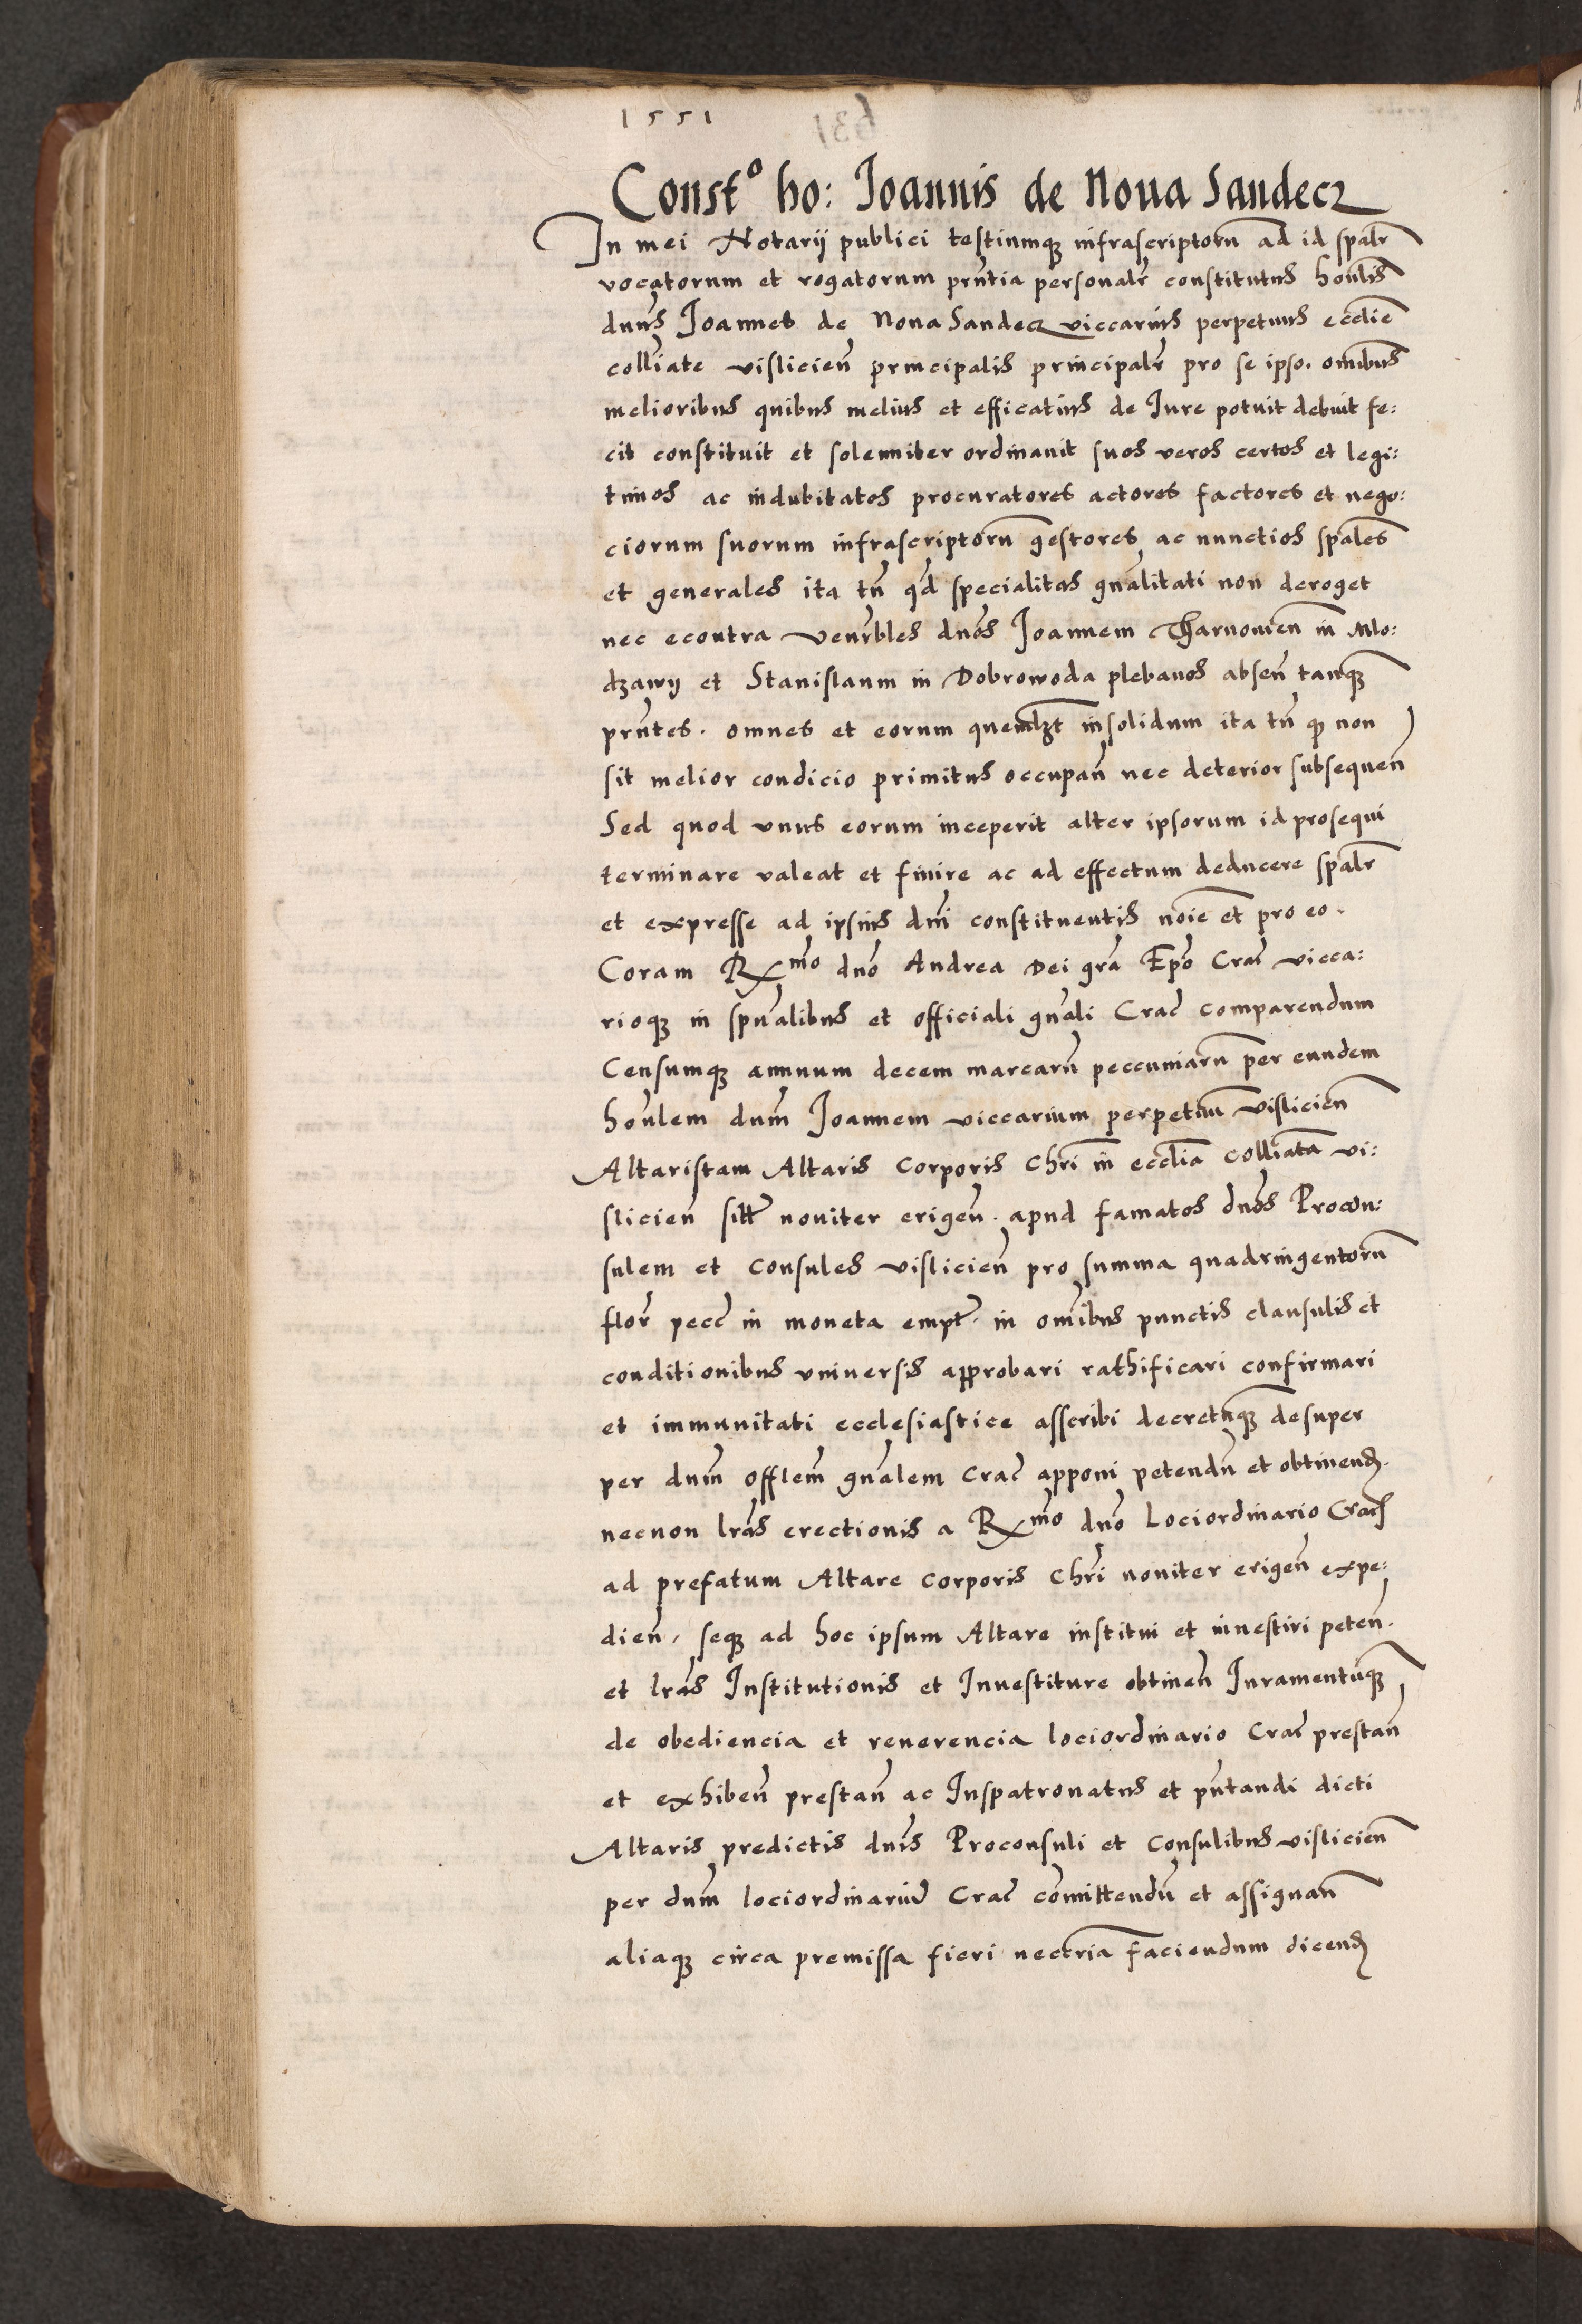 1551
Const° ho: Joannis de Noua Sandecz
In mei Notarij publici testiumqȝ infrascriptorũ ad id spãlr
vocatorum et rogatorum prñtia personalr̃ constitutus hoñlis
dnñs Joannes de Noua Sandecz viccarius perpetuus ecclie
collĩate visliciẽn principalis principalr̃ pro se ipso. omĩbus
melioribus quibus melius et efficatius de Iure potuit debuit fe:
cit constituit et solenniter ordinauit suos veros certos et legi:
timos ac indubitatos procuratores actores factores et nego:
ciorum suorum infrascriptorũ gestores ac nunctios spãles
et generales ita tñ qđ specialitas gnãlitati non deroget
nec econtra venr̃bles dnõs Joannem Tharnowiẽn in Mło:
dzawij et Stanislaum in Dobrowoda plebanos abseñ tanqȝ
prñtes. omnes et eorum quemlȝt insolidum ita tñ qȝ non
sit melior condicio primitus occupañ nec deterior subsequeñ
Sed quod vnus eorum inceperit alter ipsorum id prosequi
terminare valeat et finire ac ad effectum deducere spãlr
et expresse ad ipsius dnĩ constituentis noĩe et pro eo.
Coram Rmo dnõ Andrea Dei grã Epõ Crac̃ vicca:
rioqȝ in spũalibus et officiali gnãli Crac̃ comparendum
Censumqȝ annuum decem marcarũ peccuniarũ per eundem
hoñlem dnm̃ Joannem viccarium perpetuũ visliciẽn
Altaristam Altaris Corporis Chrĩ in ecclĩa collĩata vi:
sliciẽn sitt̃ nouiter erigeñ. apud famatos dnõs Procon:
sulem et Consules visliciẽn pro summa quadringentorũ
flor̃ pecc̃ in moneta empt̃. in omĩbus punctis clausulis et
conditionibus vniuersis approbari rathificari confirmari
et immunitati ecclesiastice asscribi decretũqȝ desuper
per dnm̃ offlem̃ gnãlem Crac̃ apponi petendũ et obtinenđ.
necnon lrãs erectionis a Rmo dnõ Lociordinario Crac̃
ad prefatum Altare Corporis Chrĩ nouiter erigeñ expe:
dieñ, seqȝ ad hoc ipsum Altare institui et inuestiri peteñ.
et lrãs Institutionis et Inuestiture obtineñ Iuramentũqȝ
de obediencia et reuerencia lociordinario Crac̃ prestañ
et exhibeñ prestañ ac Iuspatronatus et pñtandi dicti
Altaris predictis dnĩs Proconsuli et Consulibus visliciẽn
per dnm̃ lociordinariũ Crac̃ cõmittendũ et assignañ
aliaqȝ circa premissa fieri necr̃ia faciendum dicenđ